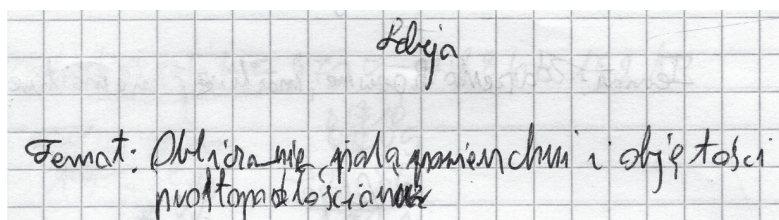 Lekcja
Temat: Obliczanie pola powierzchni i objętości
prostopadłościanu